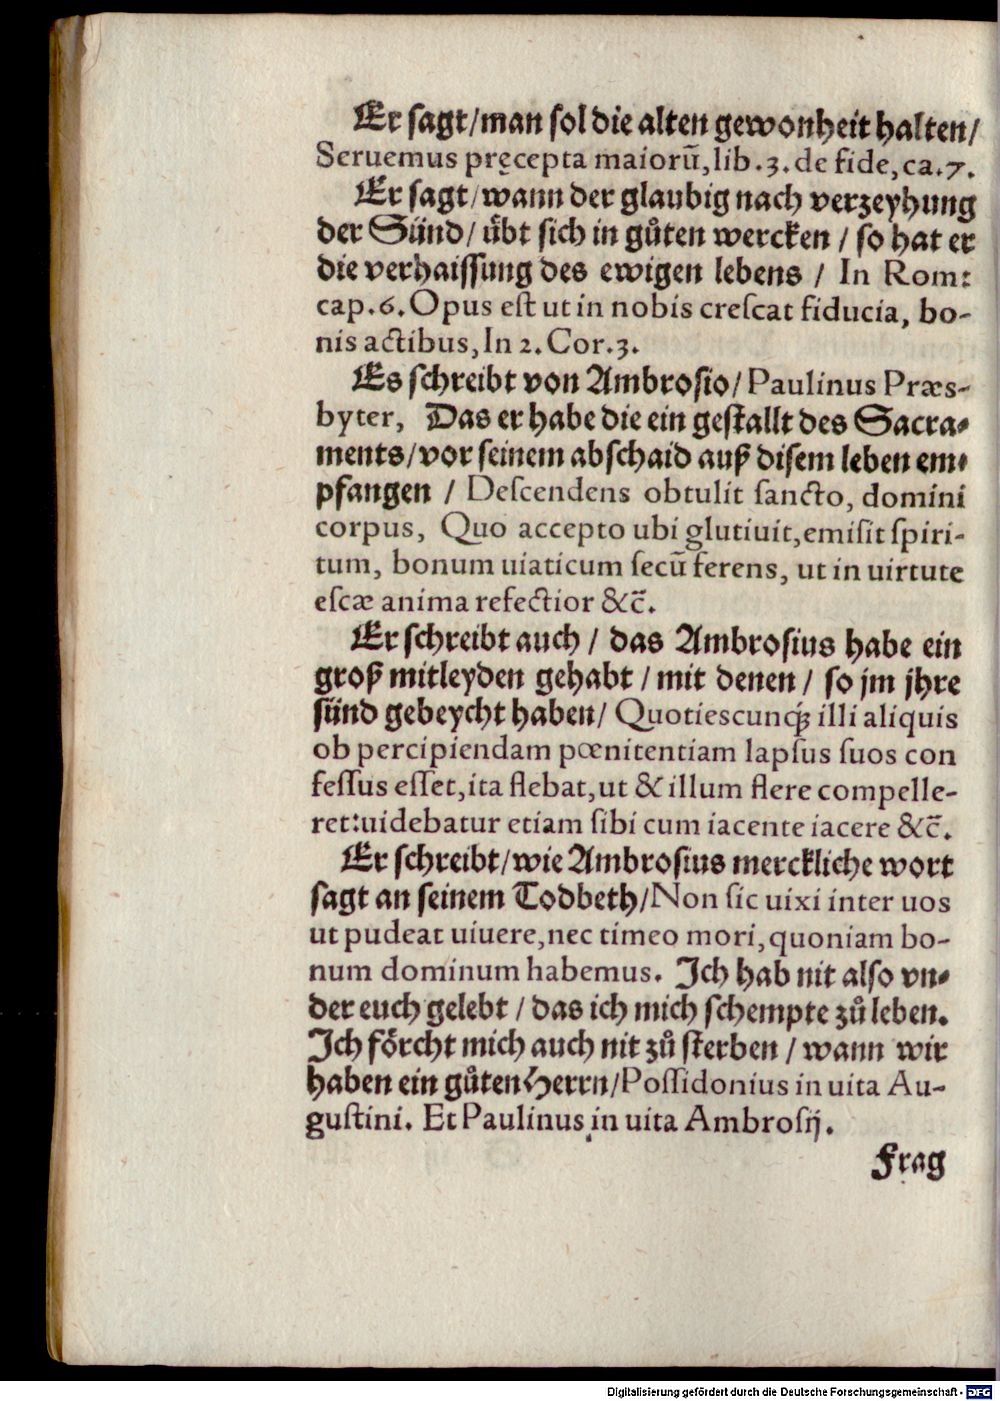 Er sagt/man sol die alten gewonheit halten/
Seruemus pręcepta maiorū, lib.3. de fide, ca.7.
Er sagt/wann der glaubig nach verzeyhung
der Sünd/ übt sich in gůten wercken / so hat er
die verhaissung des ewigen lebens / In Rom:
cap.6. Opus est ut in nobis crescat fiducia, bo-
nis actibus, In 2. Cor.3.
Es schreibt von Ambrosio/ Paulinus Præs-
byter, Das er habe die ein gestallt des Sacra-
ments/vor seinem abschaid auß disem leben em-
pfangen / Descendens obtulit sancto, domini
corpus, Quo accepto ubi glutiuit, emisit spiri-
tum, bonum uiaticum secū ferens, ut in uirtute
escæ anima refectior &c̄.
Er schreibt auch / das Ambrosius habe ein
groß mitleyden gehabt / mit denen / so jm jhre
sünd gebeycht haben/ Quotiescunqꝫ illi aliquis
ob percipiendam pœnitentiam lapsus suos con
fessus esset, ita flebat, ut & illum flere compelle-
ret: uidebatur etiam sibi cum iacente iacere &c̄.
Er schreibt/wie Ambrosius merckliche wort
sagt an seinem Todbeth/Non sic uixi inter uos
ut pudeat uiuere, nec timeo mori, quoniam bo-
num dominum habemus. Ich hab nit also vn-
der euch gelebt / das ich mich schempte zů leben.
Ich förcht mich auch nit zů sterben / wann wir
haben ein gůten Herrn/Possidonius in uita Au-
gustini. Et Paulinus in uita Ambrosij.
Frag
Digitalisierung gefördert durch die Deutsche Forschungsgemeinschaft - DFG